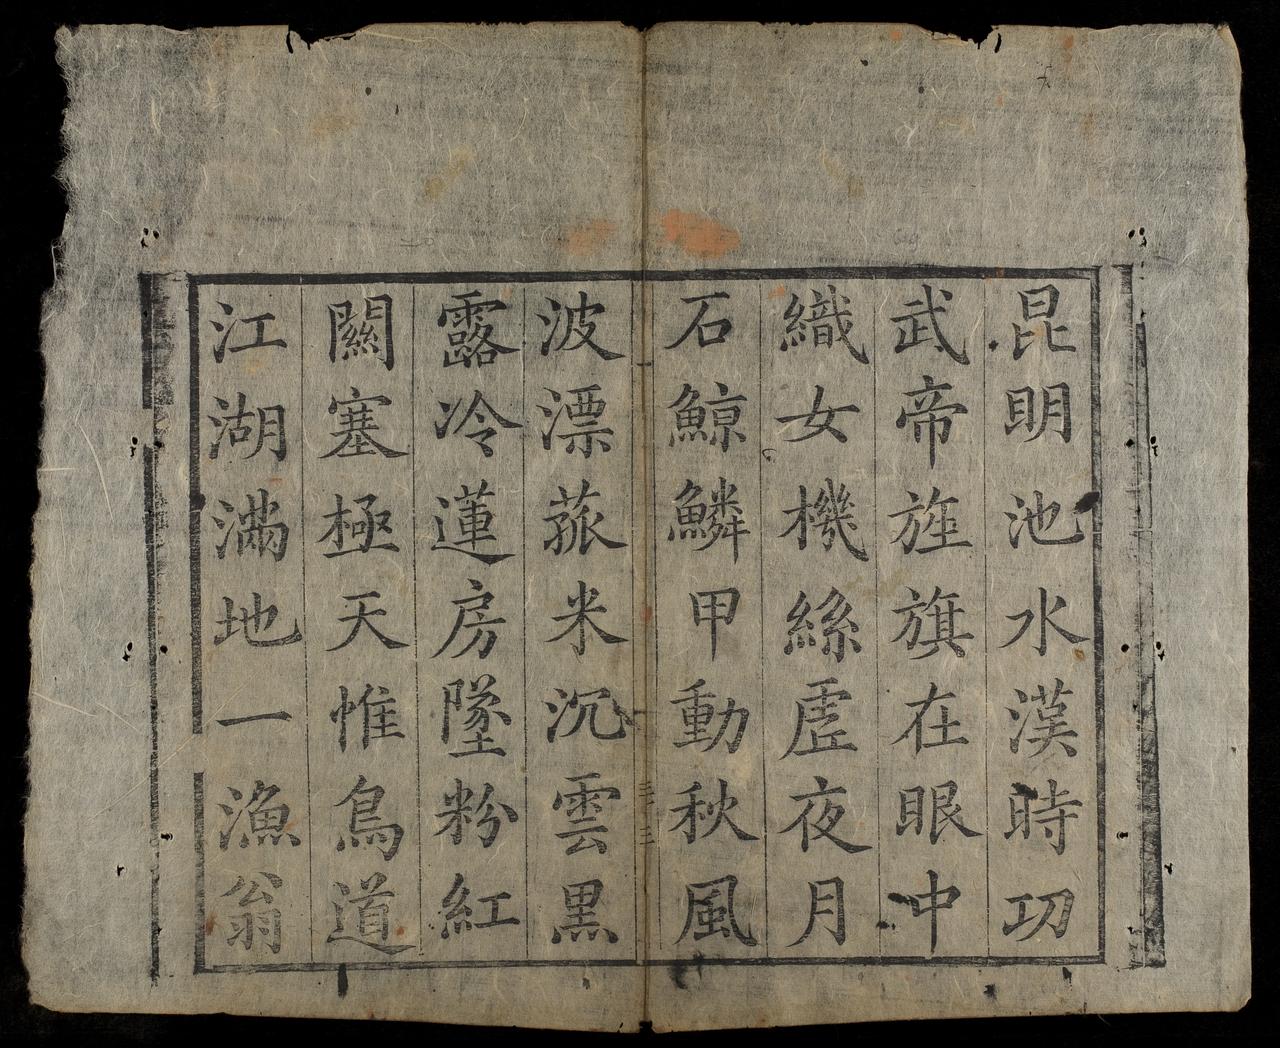 昆明池水漢時功
武帝旌旗在眼中
織女機絲虛夜月
石鯨鱗甲動秋風
波漂菰米沉雲黒
露冷蓮房墜粉紅
關塞極天惟鳥道
江湖滿地一漁翁